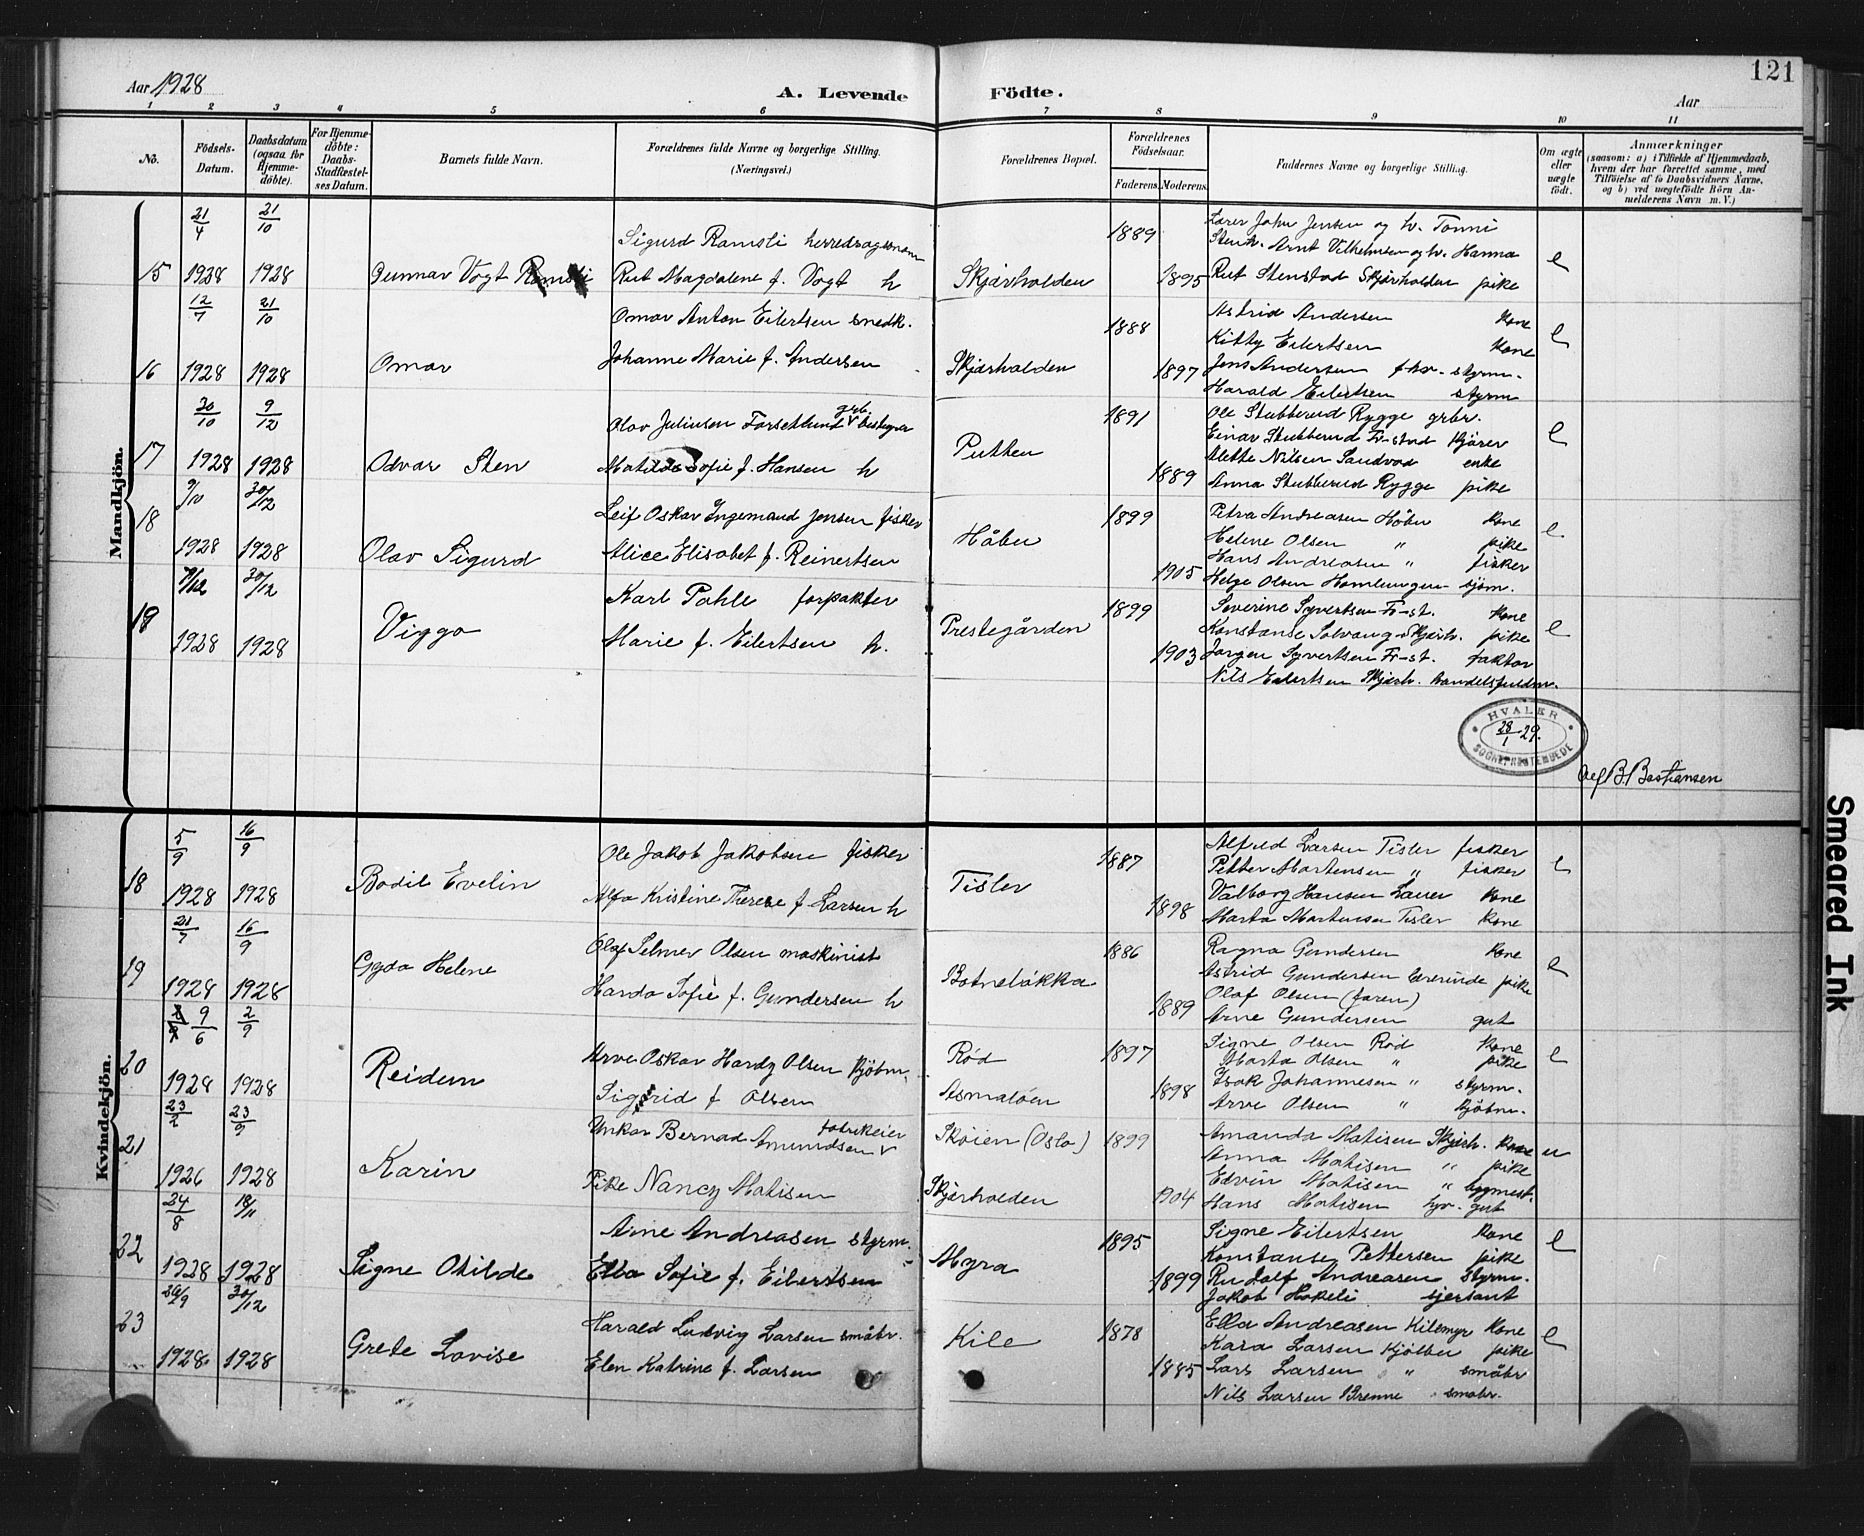 Aar 1928
A. Levende Födte.
121
Aar
1 2 3 4 5 6 7 8 9 10 11
No.
Födsels-Datum.
Daabsdatum (ogsaa for Hjemme-döbte).
For Hjemme-döbte: Daabs-Stadfæstel-ses Datum.
Barnets fulde Navn.
Forældrenes fulde Navne og borgerlige Stilling. (Næringsvei.)
Forældrenes Bopæl.
Forældrenes Födselsaar.
Faderens. Moderens.
Faddernes Navne og borgerlige Stilling.
Om ægte eller uægte födt.
Anmærkninger
(saasom: a) i Tilfælde af Hjemmedaab,
hvem der har forrettet samme, med
Tilföielse af to Daabsvidners Navne,
og b) ved uægtefödte Börn An-
melderens Navn m. V.)
Mandkjön.
15 21/4 1928 21/10 1928 Gunnar Vogt Ramsli
Sigurd Ramsli herredsagronom
Rut Magdalene f. Vogt h
Skjærhalden 1889 1895
Lærer John Jensen og h. Tonni
Stenh. Arnt Vilhelmsen og h. Hanna
Rut Stenstad Skjærhalden pike
e
16 12/7 1928 21/10 1928 Omar
Omar Anton Eilertsen snedk.
Johanne Marie f. Andersen
Skjærhalden 1888 1897
Astrid Andersen kone
Kitty Eilertsen kone
Jens Andersen fhv. styrm.
Harald Eilertsen styrm
e
17 30/10 1928 9/12 1928 Odvar Sten
Olav Juliusen Forsetlund grb. v bestyrer
Matilde Sofie f. Hansen h
Putten 1891 1889
Ole Stubberud Rygge grbr.
Einar Stubberud Fr-stad kjører
Alette Nilsen Sandvad enke
Anna Stubberud Rygge pike
e
18 9/10 1928 30/12 1928 Olav Sigurd
Leif Oskar Ingemand Jensen fisker
Alice Elisabet f. Reinertsen
Håbu 1899 1905
Petra Andreasen Håbu kone
Helene Olsen " pike
Hans Andreasen " fisker
Helge Olsen Homlungen sjøm.
e.
19 9/12 1928 30/12 1928 Viggo
Karl Pahle forpakter
Marie f. Eilertsen h.
Prestegården 1899 1903
Severine Syvertsen Fr-st. kone
Konstanse Solvang Skjærh. pike
Jørgen Syvertsen Fr-st. faktor
Nils Eilertsen Skjærh. handelsfuldm.
e
HVALER
28/1 29.
SOGNEPRESTEMBEDE
Alf B. Bastiansen
Kvindekjön.
18 5/9 1928 16/9 1928 Bodil Evelin
Ole Jakob Jakobsen fisker
Alfa Kristine Therese f. Larsen h
Tisler 1887 1898
Alfred Larsen Tisler fisker
Petter Martensen " fisker
Valborg Hansen Lauer kone
Marta Martensen Tisler kone
e
19 21/7 1928 16/9 1928 Gyda Helene
Olaf Selmer Olsen maskinist
Harda Sofie f. Gundersen h
Botneløkka 1886 1889
Ragna Gundersen kone
Astrid Gundersen lærerinde pike
Olaf Olsen (faren)
Arne Gundersen gut
e
20 9/6 1928 2/9 1928 Reidun
Arve Oskar Hardy Olsen kjøbm.
Sigrid f Olsen
Rød Asmaløen 1897 1898
Signe Olsen Rød kone
Marta Olsen " pike
Isak Johannesen " styrm.
Arve Olsen " kjøbm.
e
21 23/2 1926 23/9 1928 Karin
Unkar Bernad Amundsen fabrikeier
Pike Nancy Matisen
Skøien (Oslo) Skjærhalden 1899 1904
Amanda Matisen Skjærh. kone
Anna Matisen " pike
Edvin Matisen " bygmest.
Hans Matisen hjv. gut
u
22 24/8 1928 18/11 1928 Signe Otilde
Arne Andreasen styrm.
Ella Sofie f. Eilertsen
Myra 1895 1899
Signe Eilertsen kone
Konstanse Pettersen pike
Rudolf Andreasen styrm.
Jakob Hokeli sjersant
e
23 26/9 1928 30/12 1928 Grete Lovise
Harald Ludvig Larsen småbr.
Elen Katrine f. Larsen
Kile 1878 1885
Ella Andreasen Kilemyr kone
Kara Larsen Kjølbu pike
Lars Larsen " småbr
Nils Larsen Brenne småbr.
e
Smeared Ink